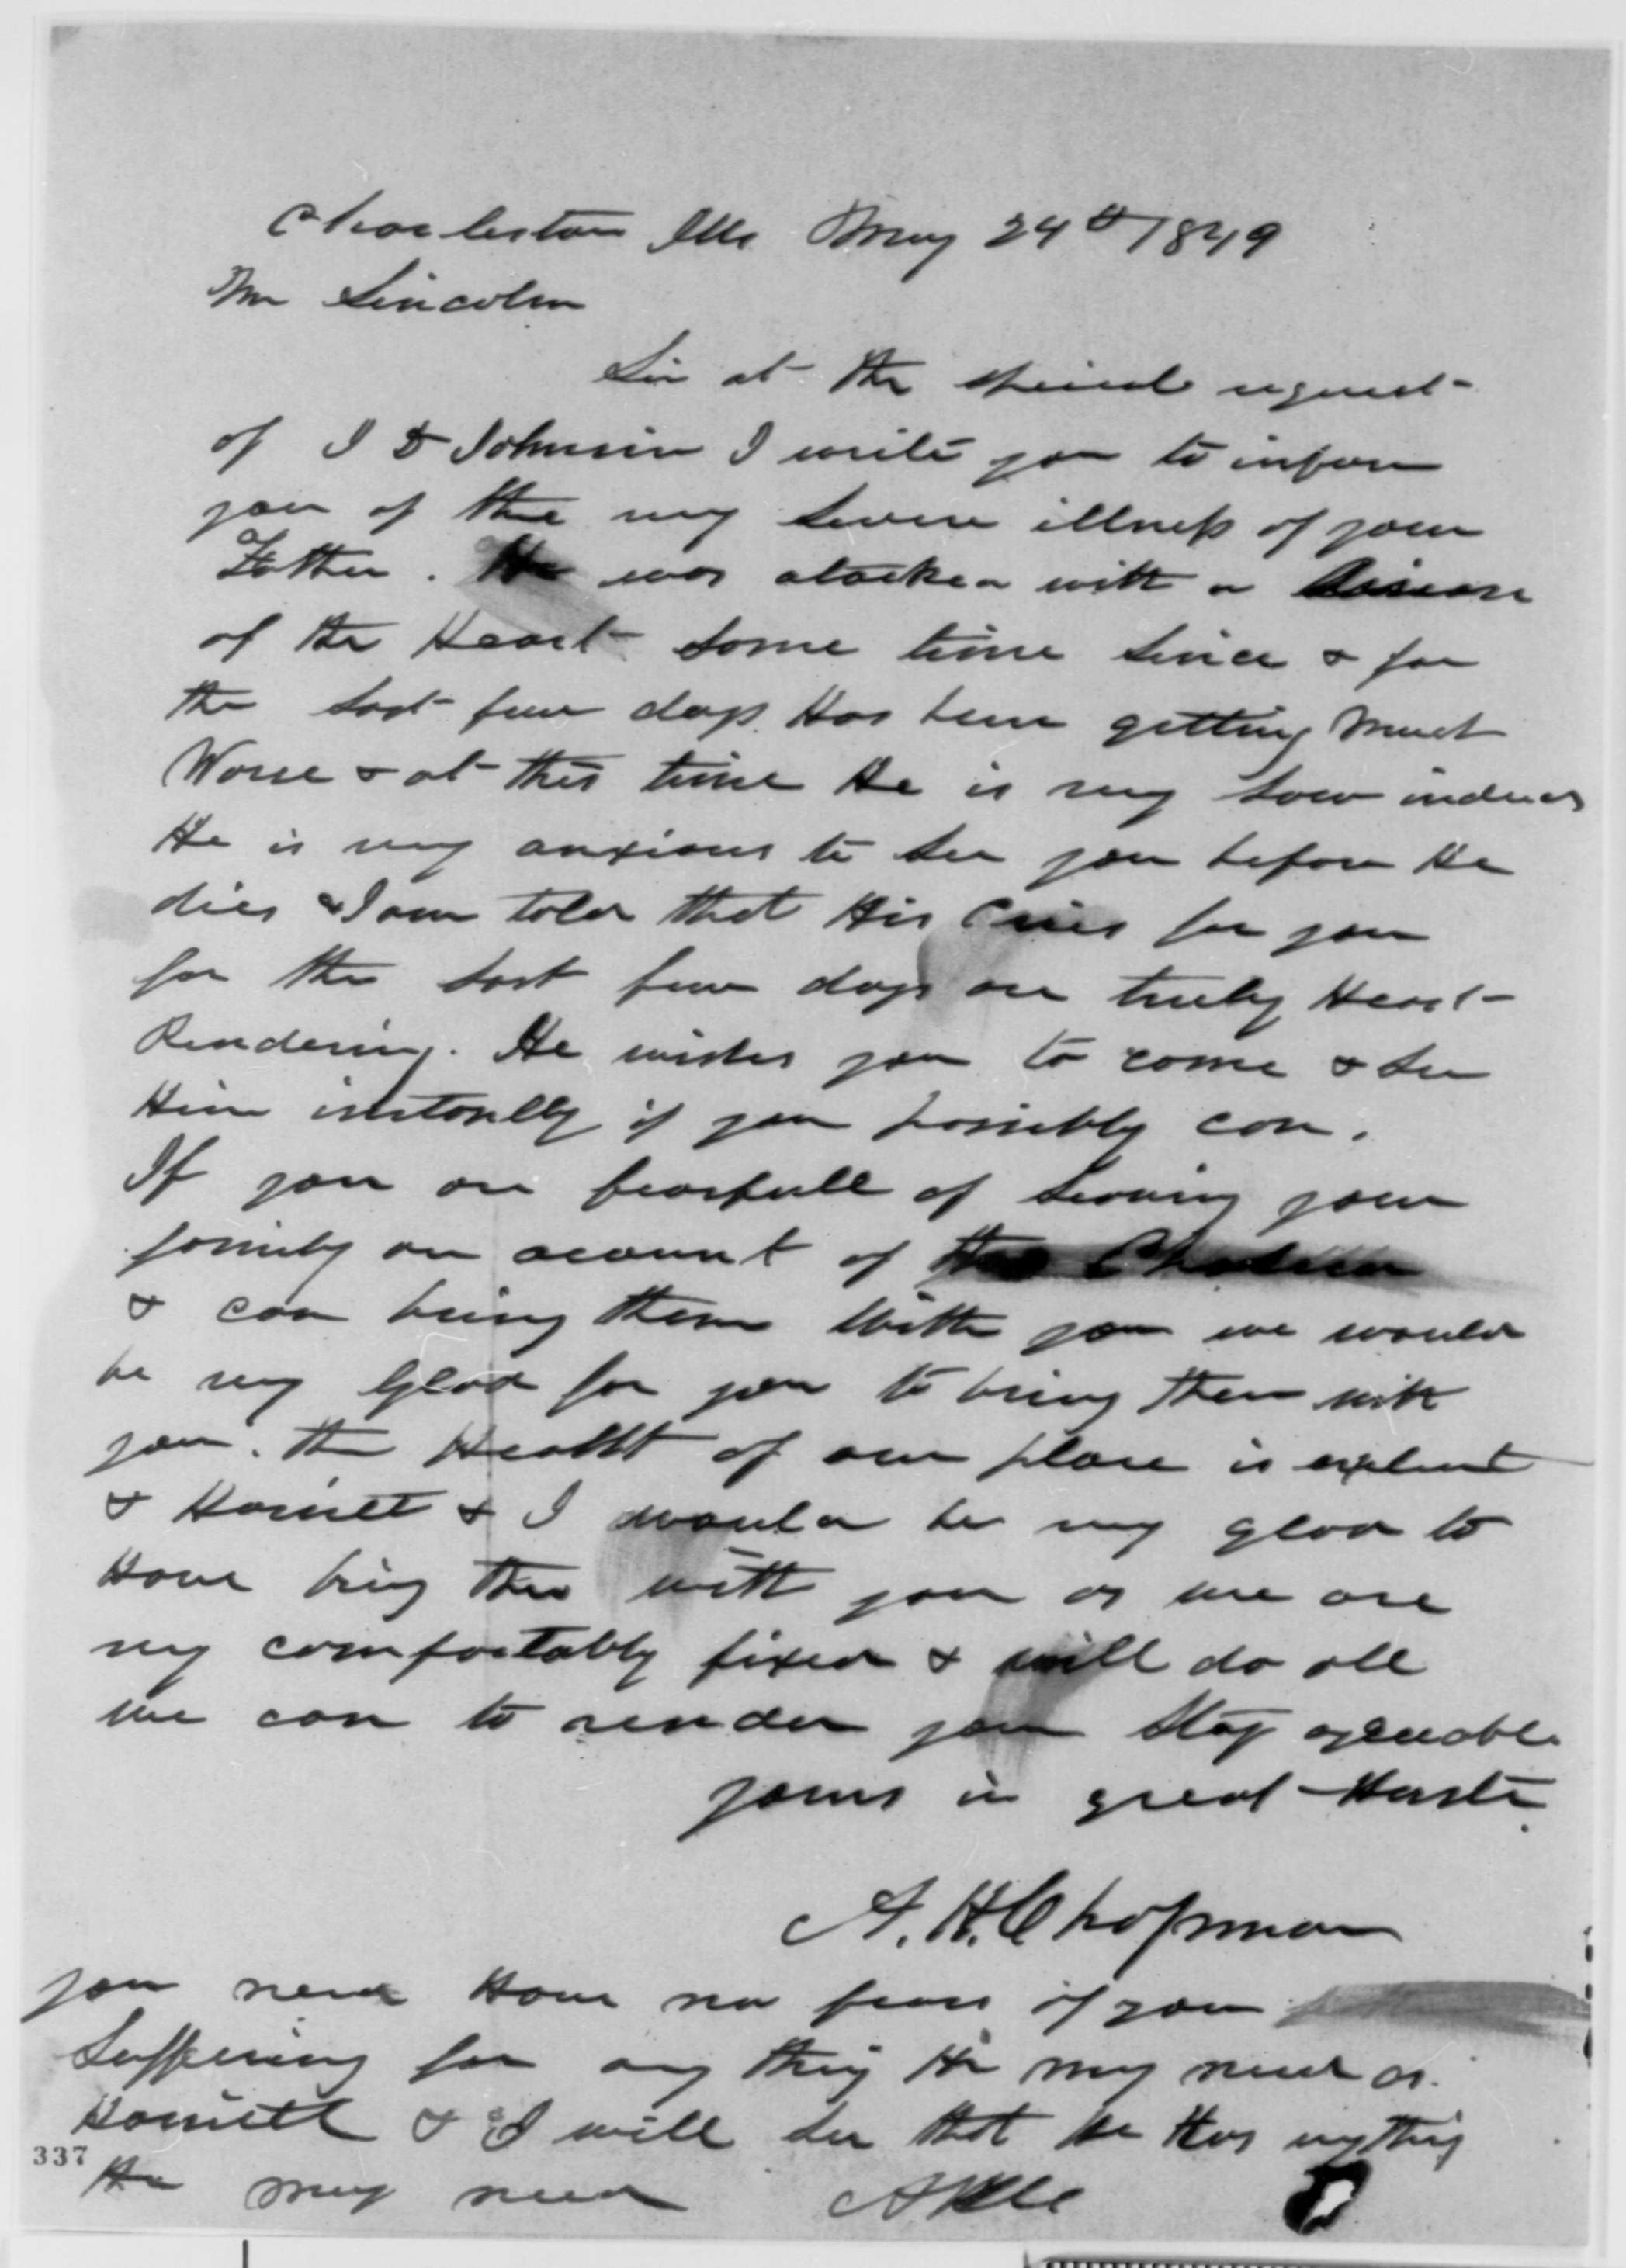 Charleston Ills May 24th 1849
Mr Lincoln
Sir at the speical request
of J D Johnson I write you to inform
you of the very severe illness of your
Father. He was atacked with a disease
of the Heart some time since & for
the last few days Has been getting Much
Worse & at this time He is very low indeed
He is very anxious to see you before He
dies & I am told that His Cries for you
for the last few days are truly Heart-
Rendering. He wishes you to come & see
Him instantly if you possibly can.
If you are fearfull of leaving your
family on account of the Cholera
& can bring them With you we would
be very Glad for you to bring them with
you. the Health of our place is exelent
& Harriet & I would be very glad to
Have bring them with you as we are
very comfortably fixed & will do all
we can to render your Stay agreeable.
yours in great Haste
A. H. Chapman
you need Have no fears of your
Suffering for any thing He may need as
Harriett & I will see that he Has anything
337
He may need AHC